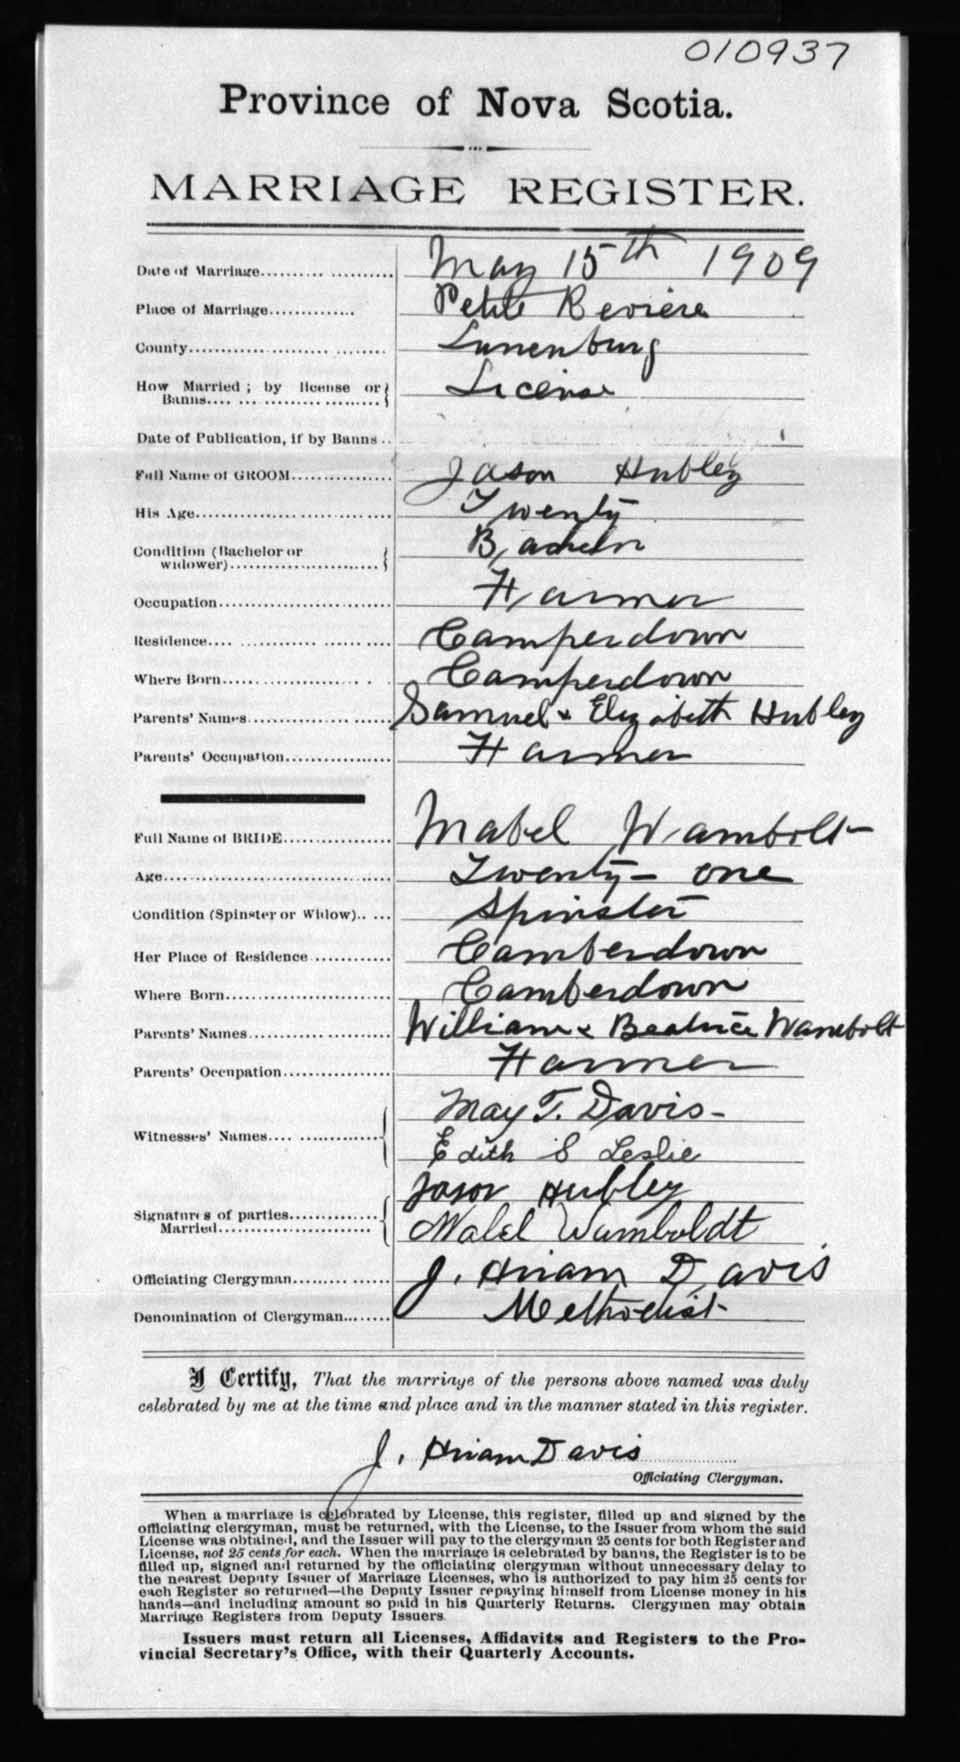 010937
Province of Nova Scotia.
MARRIAGE REGISTER.
Date of Marriage.......... .......... May 15th 1909
Place of Marriage.............. Petite Reviere
County............................. Lunenburg
How Married ; by license or } License
Banns.... ... ..................... }
Date of Publication, if by Banns ..
Full Name of GROOM................. Jason Hubley
His Age.............................. Twenty
Condition (Bachelor or { Bachelor
widower)......................... {
Occupation........................... Farmer
Residence.... ................. .... Camperdown
Where Born...................... . . Camperdown
Parents' Names....................... Samuel & Elizabeth Hubley
Parents' Occupation................. Farmer
Full Name of BRIDE................. Mabel Wambolt
Age.................................... Twenty-one
Condition (Spinster or Widow).. ... Spinster
Her Place of Residence ............ Camberdown
Where Born.......................... Camberdown
Parents' Names....................... William & Beatrice Wambolt
Parents' Occupation................. Farmer
May T. Davis
Witnesses' Names.... ..............{
Edith S Leslie
Jason Hubley
Signatures of parties............... {
Married.......................... { Mabel Wamboldt
Officiating Clergyman......... ...... J. Hiram Davis
Denomination of Clergyman......... Methodist
I Certify, That the marriage of the persons above named was duly
celebrated by me at the time and place and in the manner stated in this register.
J. Hiram Davis
Officiating Clergyman.
When a marriage is celebrated by License, this register, filled up and signed by the
officiating clergyman, must be returned, with the License, to the Issuer from whom the said
License was obtained, and the Issuer will pay to the clergyman 25 cents for both Register and
License, not 25 cents for each. When the marriage is celebrated by banns, the Register is to be
filled up, signed and returned by the officiating clergyman without unnecessary delay to
the nearest Deputy Issuer of Marriage Licenses, who is authorized to pay him 25 cents for
each Register so returned—the Deputy Issuer repaying himself from License money in his
hands—and including amount so paid in his Quarterly Returns. Clergymen may obtain
Marriage Registers from Deputy Issuers.
Issuers must return all Licenses, Affidavits and Registers to the Pro-
vincial Secretary's Office, with their Quarterly Accounts.